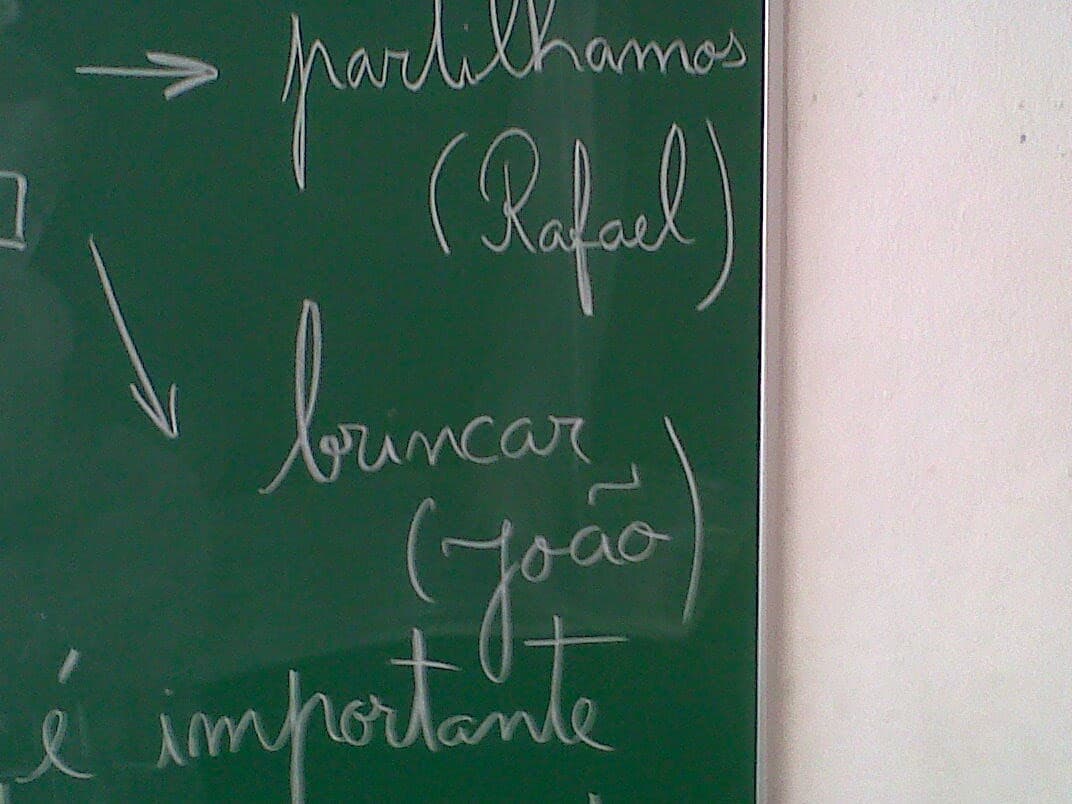 partilhamos
(Rafael)
brincar
(João)
é importante